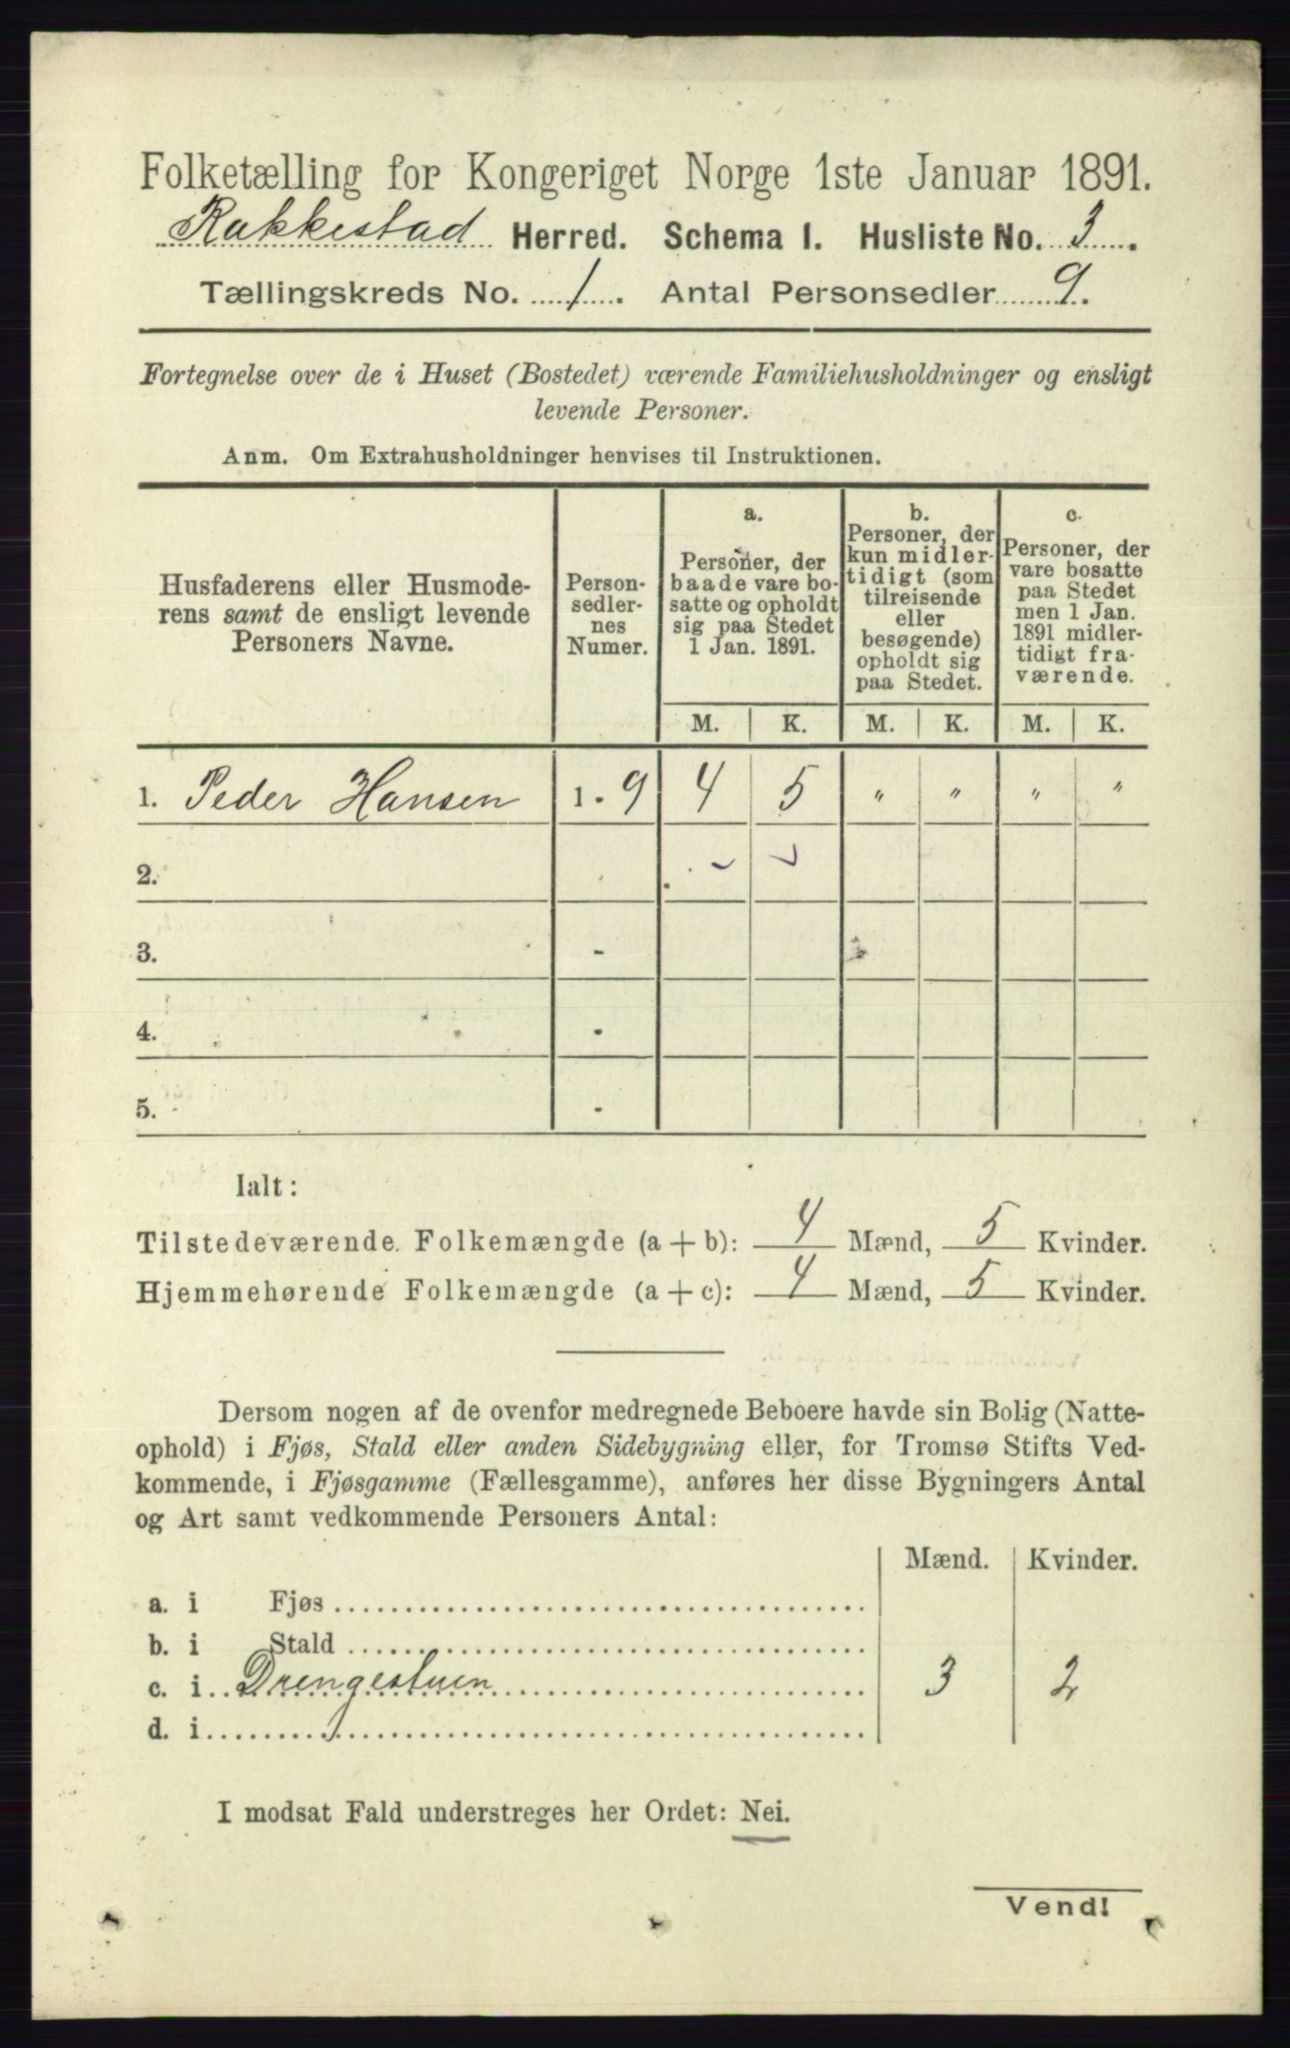 Folketælling for Kongeriget Norge 1ste Januar 1891.
Rakkestad Herred. Schema I. Husliste No. 3.
Tællingskreds No. 1. Antal Personsedler 9.
Fortegnelse over de i Huset (Bostedet) værende Familiehusholdninger og ensligt
levende Personer.
Anm. Om Extrahusholdninger henvises til Instruktionen.
Husfaderens eller Husmode-
rens samt de ensligt levende
Personers Navne.
Person-
sedler-
nes
Numer.
a.
Personer, der
baade vare bo-
satte og opholdt
sig paa Stedet
1 Jan. 1891.
b.
Personer, der
kun midler-
tidigt (som
tilreisende
eller
besøgende)
opholdt sig
paa Stedet.
c.
Personer, der
vare bosatte
paa Stedet
men 1 Jan.
1891 midler-
tidigt fra-
værende.
M. K. M. K. M. K.
1. Peder Hansen 1 - 9 4 5 " " " "
2.
3. -
4. -
5. -
Ialt:
Tilstedeværende Folkemængde (a + b): 4 Mænd, 5 Kvinder.
Hjemmehørende Folkemængde (a + c): 4 Mænd, 5 Kvinder.
Dersom nogen af de ovenfor medregnede Beboere havde sin Bolig (Natte-
ophold) i Fjøs, Stald eller anden Sidebygning eller, for Tromsø Stifts Ved-
kommende, i Fjøsgamme (Fællesgamme), anføres her disse Bygningers Antal
og Art samt vedkommende Personers Antal:
Mænd. Kvinder.
a. i Fjøs
b. i Stald
c. i Drengestuen 3 2
d. i
I modsat Fald understreges her Ordet: Nei.
Vend!